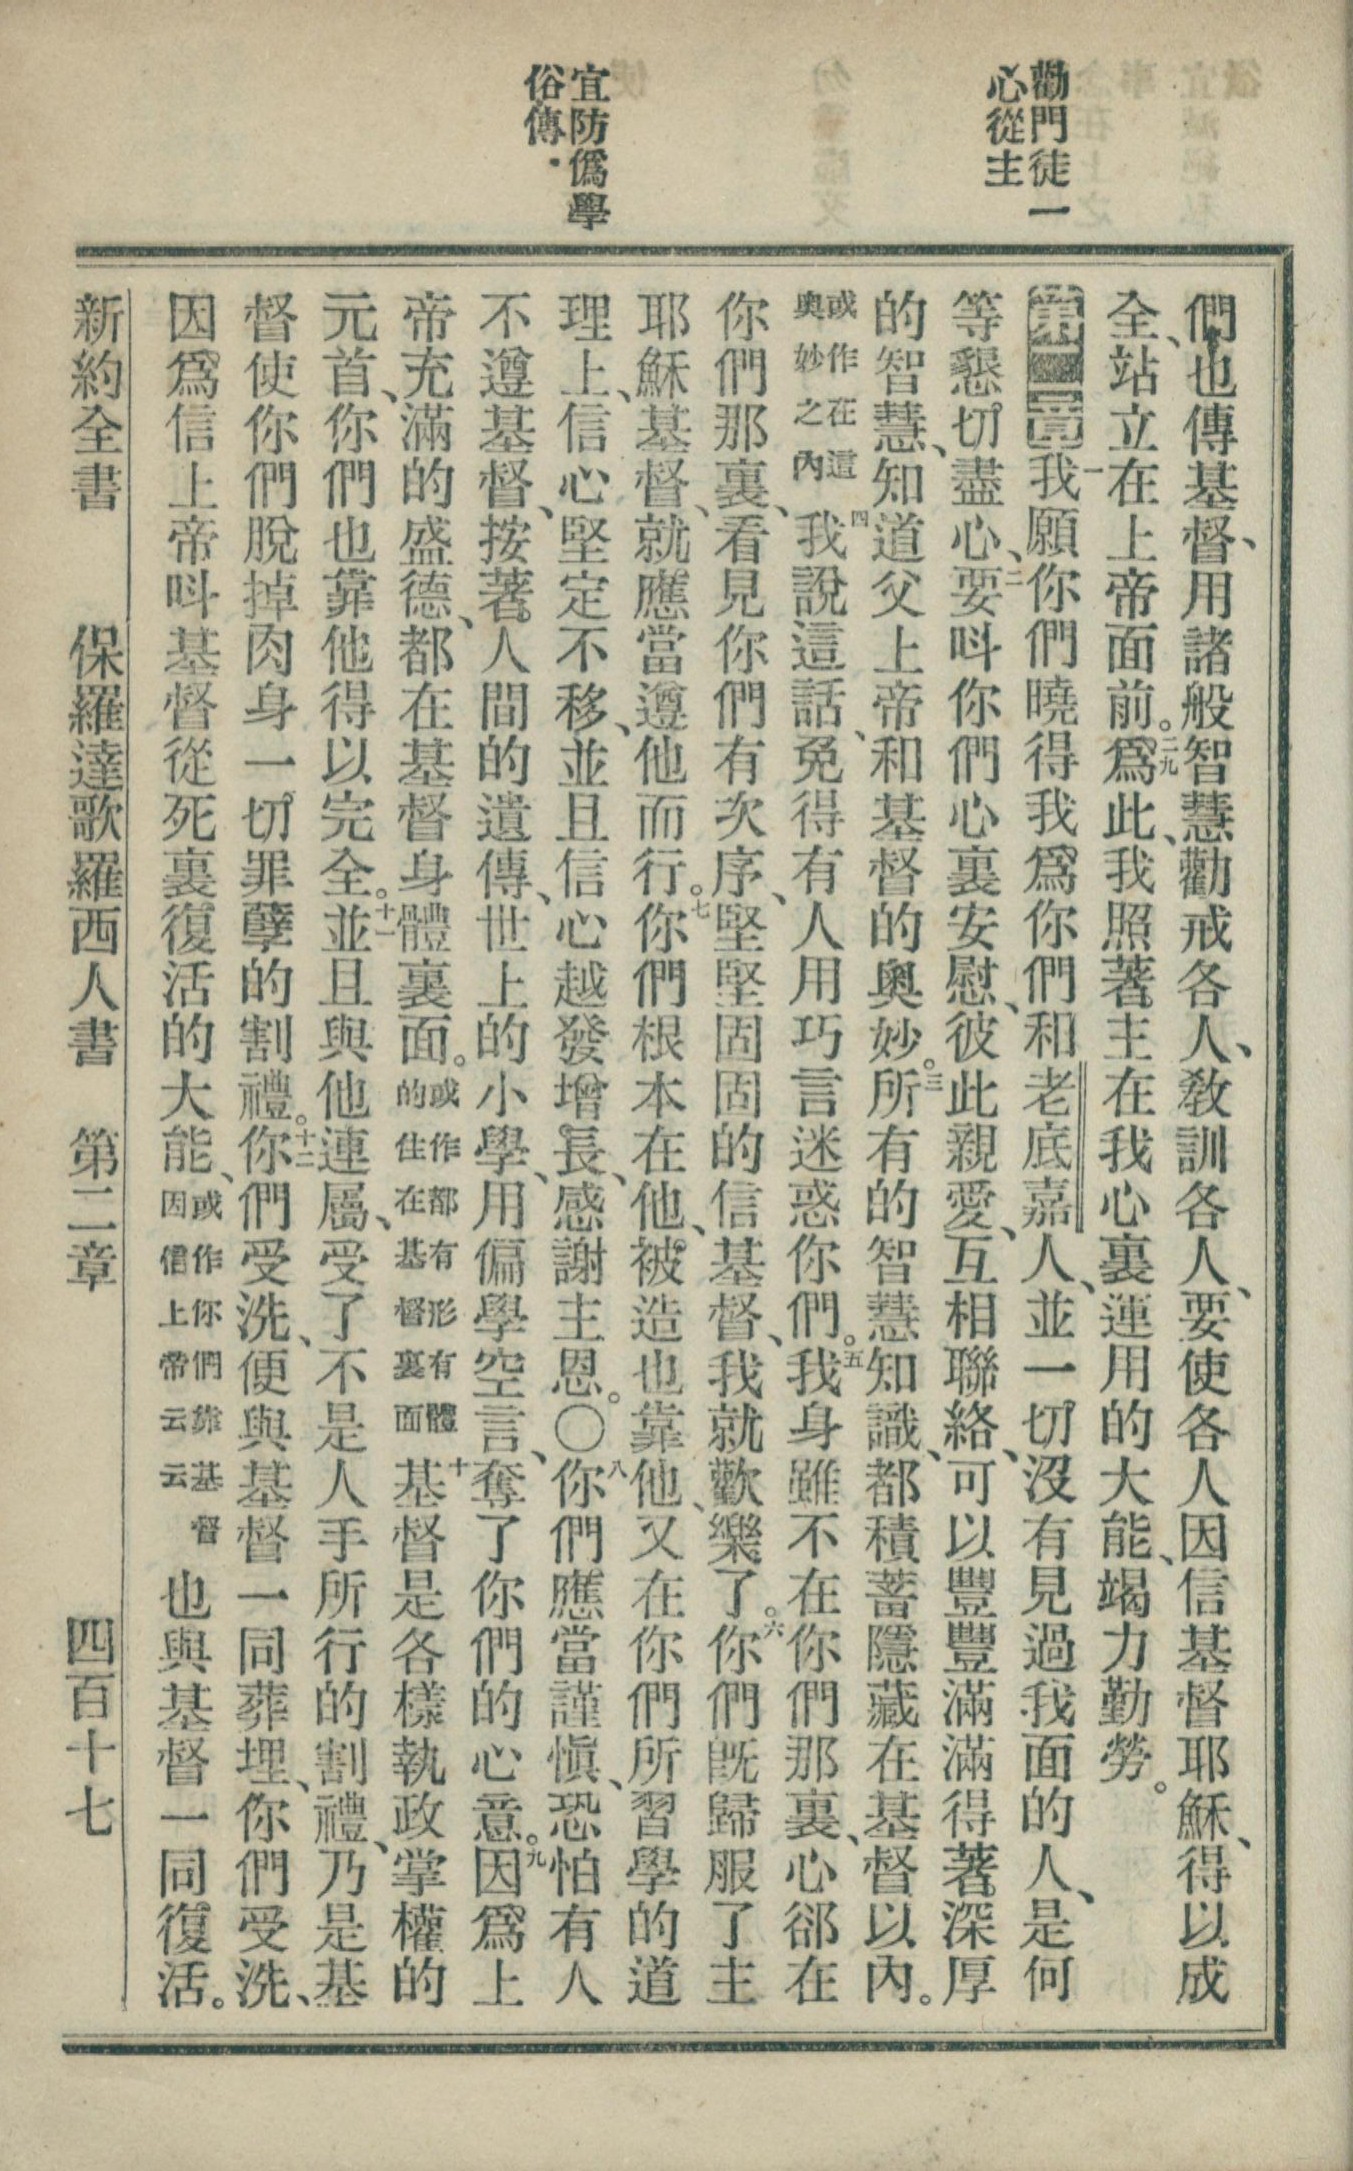 勸門徒一
心從主
宜防僞學
俗傳.
們也傳基督、用諸般智慧勸戒各人、敎訓各人、要使各人因信基督耶穌、得以成
全、站立在上帝面前。二九爲此、我照著主在我心裏運用的大能、竭力勤勞。
第二章一我願你們曉得我爲你們和老底嘉人、並一切沒有見過我面的人、是何
等懇切盡心、二要呌你們心裏安慰、彼此親愛、互相聯絡、可以豐豐滿滿得著深厚
的智慧、知道父上帝和基督的奧妙。三所有的智慧知識、都積蓄隱藏在基督以內。
或作在這奧妙之內四我說這話、免得有人用巧言迷惑你們。五我身雖不在你們那裏、心郤在
你們那裏、看見你們有次序、堅堅固固的信基督、我就歡樂了。六你們旣歸服了主
耶穌基督、就應當遵他而行。七你們根本在他、被造也靠他、又在你們所習學的道
理上、信心堅定不移、並且信心越發增長、感謝主恩。〇八你們應當謹愼、恐怕有人
不遵基督、按著人間的遺傳、世上的小學、用偏學空言、奪了你們的心意。九因爲上
帝充滿的盛德、都在基督身體裏面。或作都有形有體的住在基督裏面十基督是各樣執政掌權的
元首、你們也靠他得以完全。十一並且與他連屬、受了不是人手所行的割禮、乃是基
督使你們脫掉肉身一切罪孽的割禮。十二你們受洗、便與基督一同葬埋、你們受洗、
因爲信上帝呌基督從死裏復活的大能、或作你們靠基督因信上帝云云也與基督一同復活。
新約全書　保羅達歌羅西人書　第二章　四百十七